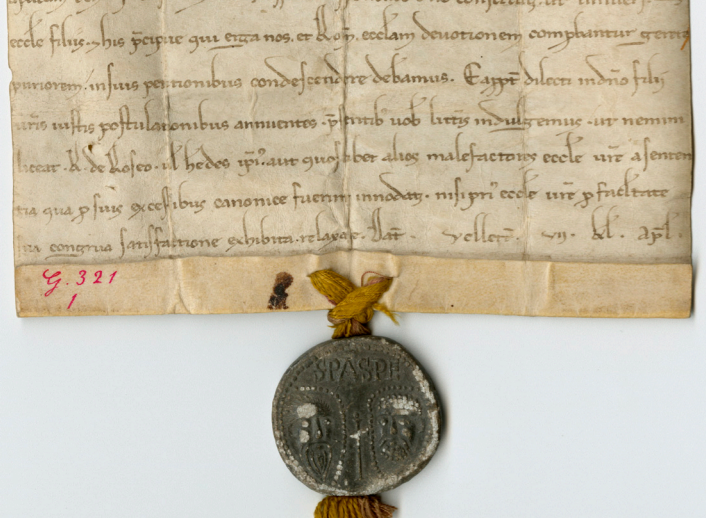 eccłe filijs. his p̄cipue qui erga nos. et Rom̄. ecclam devotionem comprobantur gerere
puriorem. in suis petitionibus condescendere debeamus. Eapp̄t dilecti in dn̄o filij
vr̄is iustis postulationibus annuentes. p̄sentib vob litt̄is indulgemus. ut nemini
liceat. R. de Rosco. ul h̄edes ip̄i. aut quoslibet alios malefactores eccłe vr̄e a senten
tia qua p suis excessibus canonice fuerint innodati. nisi pri eccłe vr̄e p facultate
sui congrua satisfactione exhibita. relaxare. Dat̄. velletr̄. vij. kl. Apl̄.
G. 321
1
SPASPE